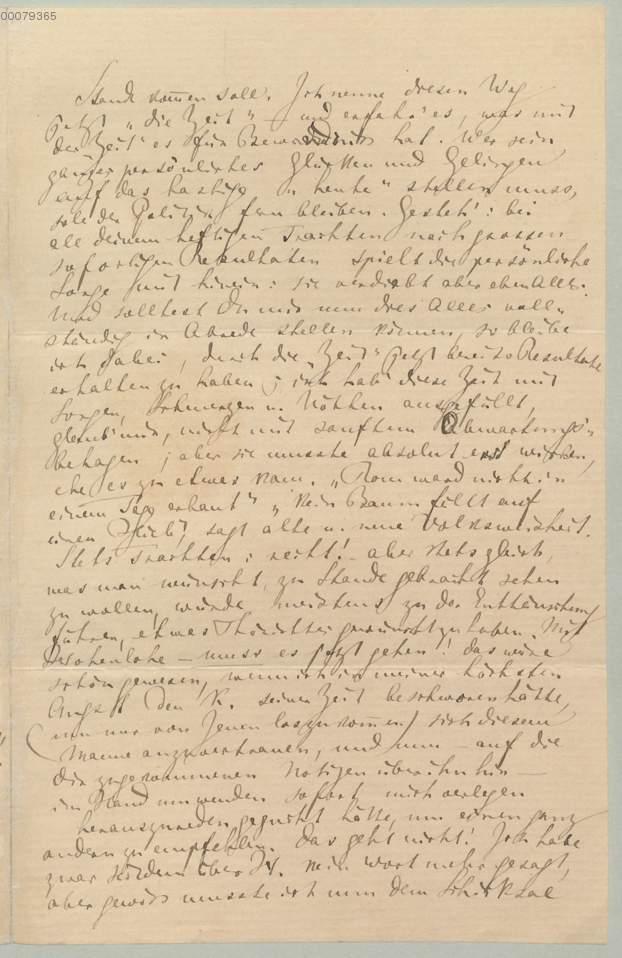 00079365
Stande kommen soll. Ich nenne diesen Weg
jetzt "die Zeit" — und erfahr' es, was mit
der Zeit es für Bewandtniss hat. Wer sein
ganzes persönliches Glücken und Gelingen
auf das hastige "heute" stellen muss,
soll der Politik fern bleiben. Gesteh': bei
all deinem heftigen Trachten nach grossen
sofortigen Resultaten spielt die persönliche
Sorge mit hinein: sie verdirbt aber eben Alles.
Und solltest Du mir nun dies Alles voll-
ständig in Abrede stellen können, so bleibe
ich dabei, durch die "Zeit" jetzt bereits Resultate
erhalten zu haben; ich hab' diese Zeit mit
Sorgen, Schmerzen u. Nöthen ausgefüllt,
glaub' mir, nicht mit sanftem Abwartungs-
behagen; aber sie musste absolut erst wirken,
ehe es zu etwas kam. "Rom ward nicht in
einem Tag erbaut" "kein Baum fällt auf
einen Hieb", sagt alte u. neue Volksweisheit.
Stets trachten: recht! — aber stets gleich,
was man wünscht, zu Stande gebracht sehen
zu wollen, würde meistens zu der Enttäuschung
führen, etwas Thörichtes gewünscht zu haben. Mit
Hohenlohe — muss es jetzt gehen! Das wäre
schön gewesen, wenn ich in meiner höchsten
Angst den K. seiner Zeit beschworen hätte,
(um nur von Jenen loszukommen) sich diesem
Manne anzuvertrauen, und nun — auf die
Dir zugekommenen Notizen über ihn hin —
im Hand umwenden sofort mich verlegen
herauszureden gesucht hätte, um einen ganz
andern zu empfehlen. Das geht nicht! Ich habe
zwar seitdem über H. kein Wort mehr gesagt,
aber gewiss musste ich nun dem Schicksal